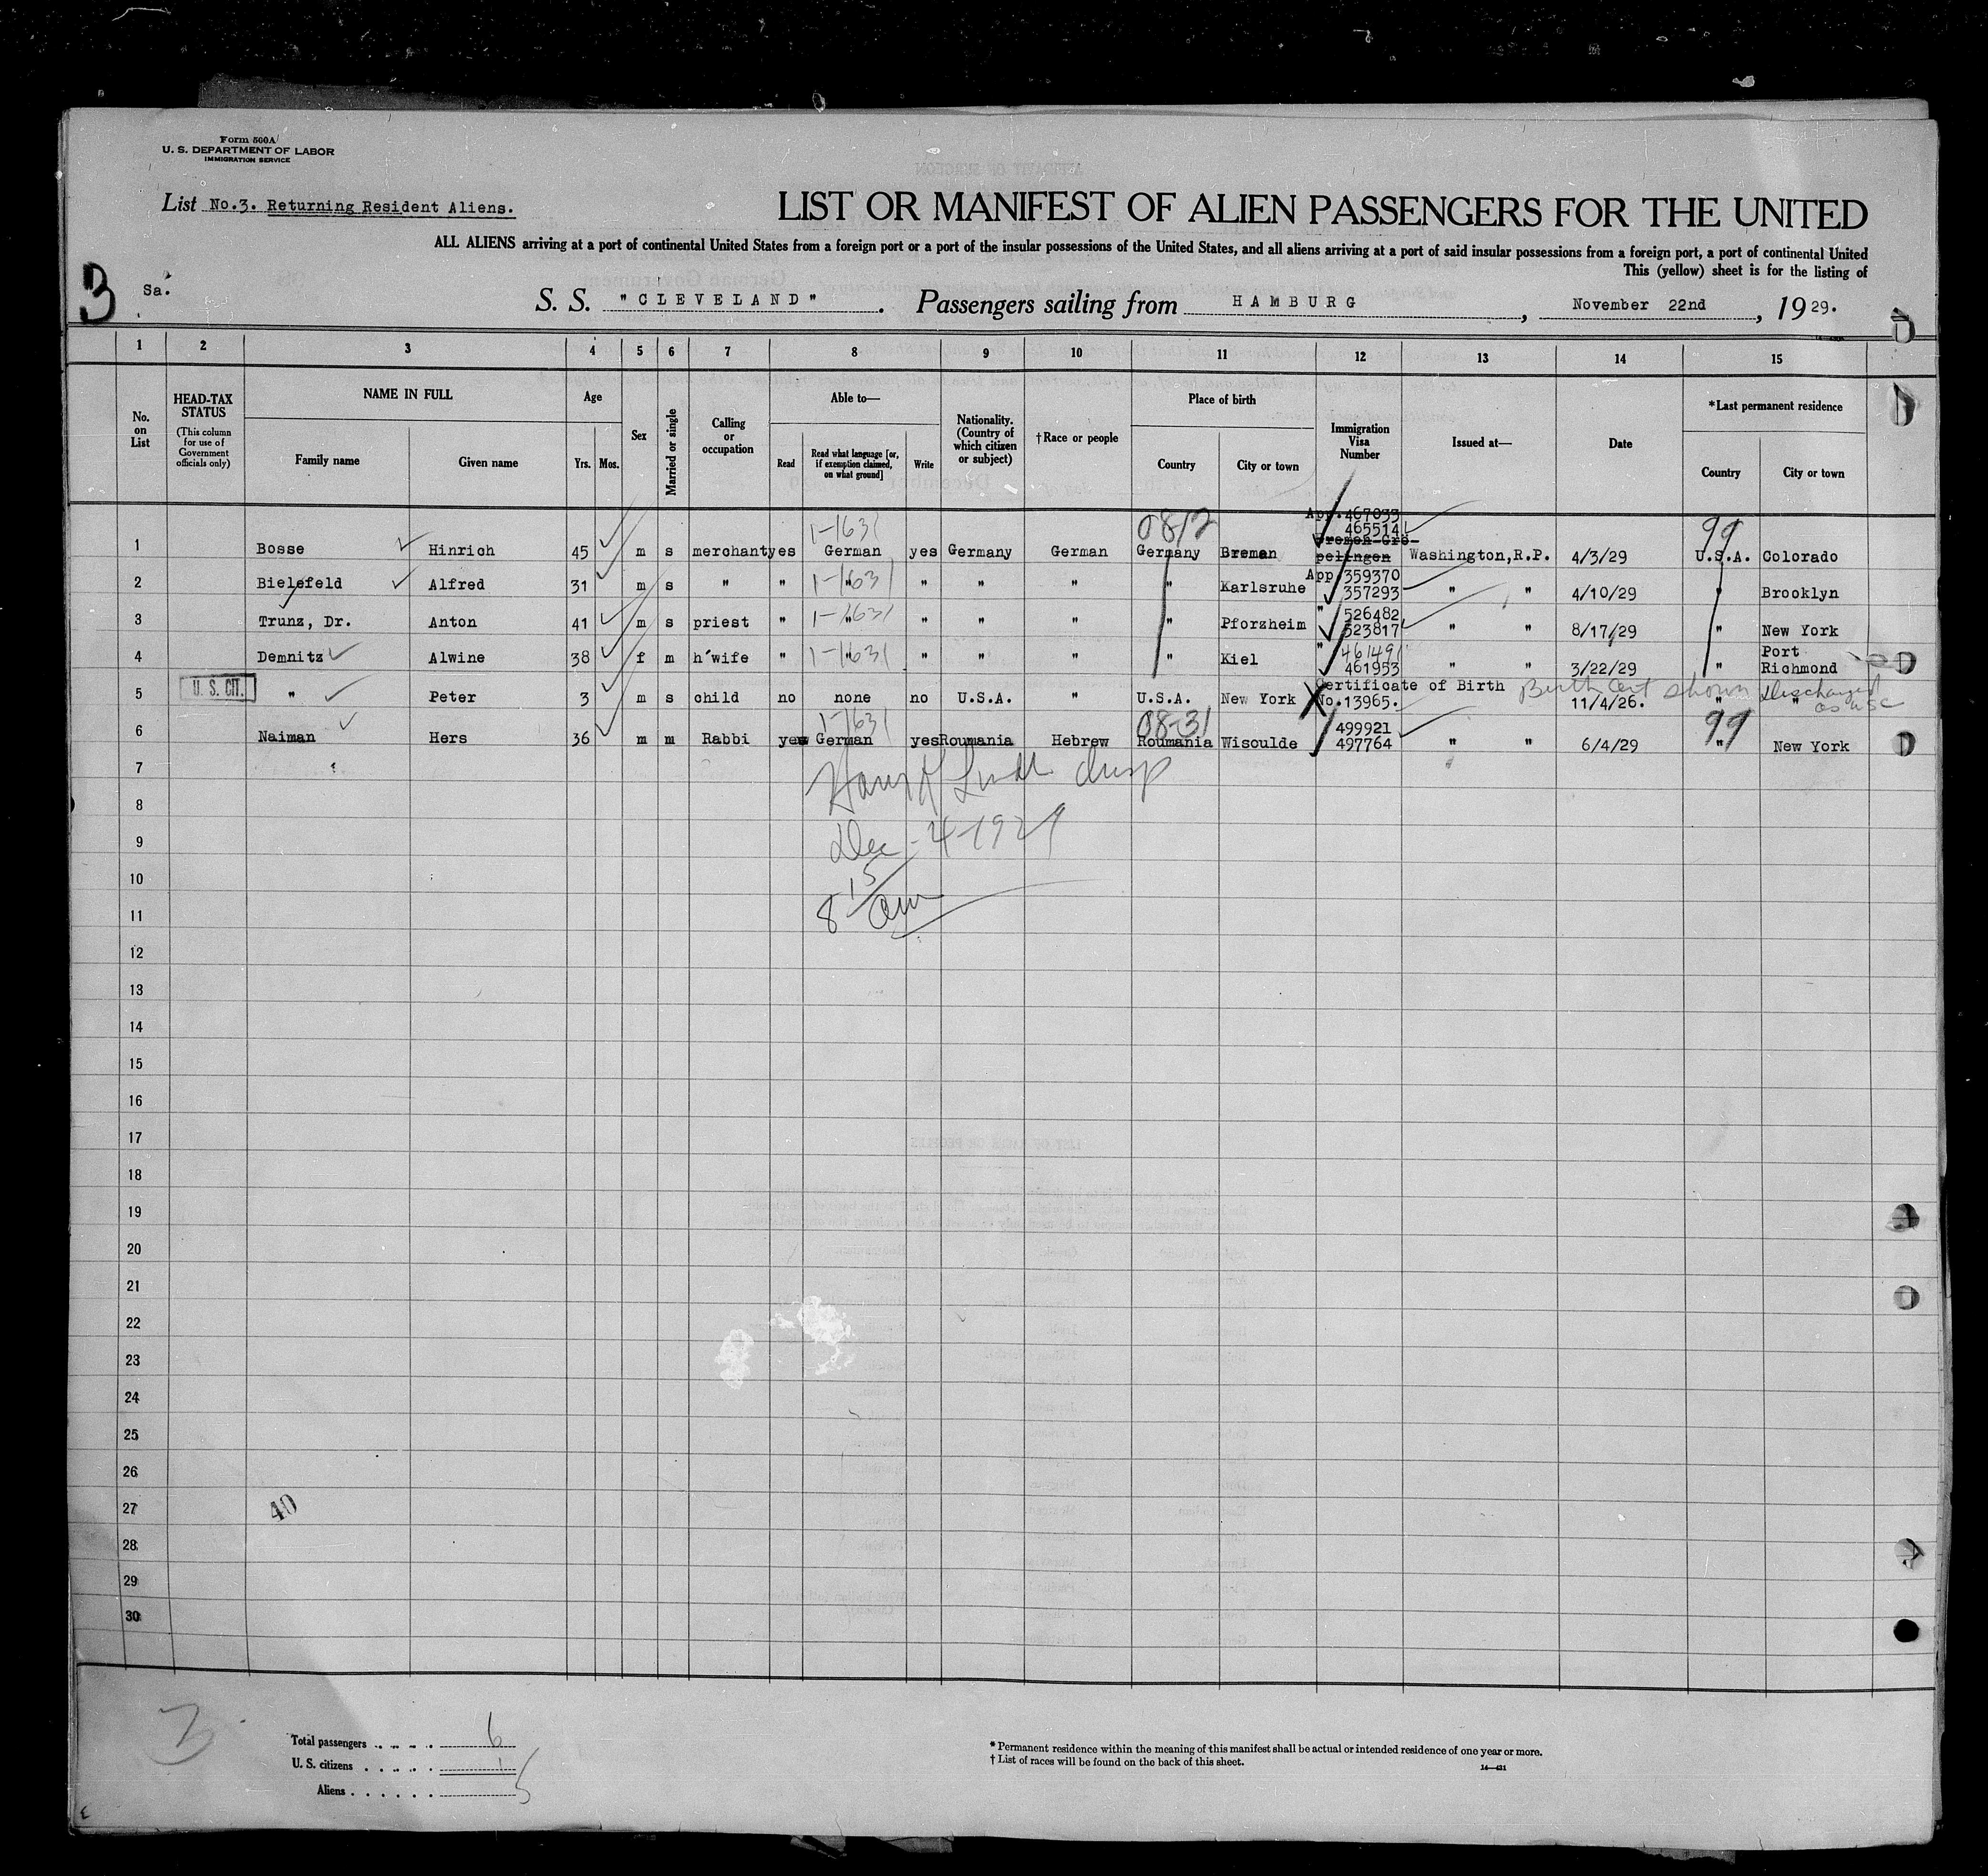 Form 500A
U. S. DEPARTMENT OF LABOR
IMMIGRATION SERVICE
List No.3. Returning Resident Aliens.
LIST OR MANIFEST OF ALIEN PASSENGERS FOR THE UNITED
ALL ALIENS arriving at a port of continental United States from a foreign port or a port of the insular possessions of the United States, and all aliens arriving at a port of said insular possessions from a foreign port, a port of continental United
This (yellow) sheet is for the listing of
3 Sa.
S. S. "CLEVELAND". Passengers sailing from HAMBURG, November 22nd, 1929.
1 2 3 4 5 6 7 8 9 10 11 12 13 14 15
No. on List
HEAD-TAX STATUS (This column for use of Government officials only)
NAME IN FULL Family name Given name
Age Yrs. Mos.
Sex
Married or single
Calling or occupation
Able to— Read Read what language [or, if exemption claimed, on what ground] Write
Nationality. (Country of which citizen or subject)
†Race or people
Place of birth Country City or town
Immigration Visa Number
Issued at—
Date
*Last permanent residence Country City or town
1-1631 08/2 App.467033 465514 99
1 Bosse Hinrich 45 m s merchant yes German yes Germany German Germany Bremen Bremen-Grö-pelingen Washington,R.P. 4/3/29 U.S.A. Colorado
2 Bielefeld Alfred 31 m s " " 1-1631 " " " " " Karlsruhe App.359370 357293 " " 4/10/29 " Brooklyn
3 Trunz, Dr. Anton 41 m s priest " 1-1631 " " " " " Pforzheim " 526482 523817 " " 8/17/29 " New York
4 Demnitz Alwine 38 f m h'wife " 1-1631 " " " " " Kiel " 461491 461953 " " 3/22/29 " Port Richmond
5 U. S. CIT. " Peter 3 m s child no none no U.S.A. " U.S.A. New York Certificate of Birth No.13965. 11/4/26. " "
Birth Cert shown Discharged as USC
1-1631 08-31 99
6 Naiman Hers 36 m m Rabbi yes German yes Roumania Hebrew Roumania Wisoulde 499921 497764 " " 6/4/29 " New York
7
Dec-4-1929
8
9
10
8 15 am
11
12
13
14
15
16
17
18
19
20
21
22
23
24
25
26
27
40
28
29
30
3
Total passengers 6
U. S. citizens 1
Aliens 5
* Permanent residence within the meaning of this manifest shall be actual or intended residence of one year or more.
† List of races will be found on the back of this sheet.
14—431